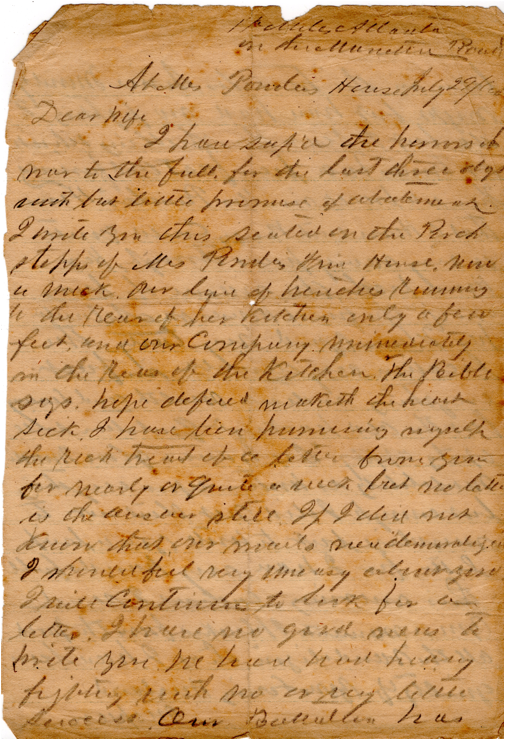 Miles Atlanta
on the Marietta Road
At Mrs Ponders House July 29/64
Dear Wife
I have sup'd the horrors of
war to the full, for the last three days
with but little promise of abatement.
I write you this seated on the Porch
stepps of Mrs Ponders Fine House, now
a wreck. Our line of trenches running
to the rear of her Kitchen only a few
feet, and our Company immediately
in the rear of the Kitchen. The Bible
says. hope defered maketh the heart
sick. I have been promising myself
the rich treat of a letter from you
for nearly or quite a week but no letter
is the answer still. If I did not
know that our mails were demoralized
I should feel very uneasy about you
I will Continue to look for a
letter. I have no good news to
write you. We have had heavy
fighting with no or very little
success. Our Battallion has